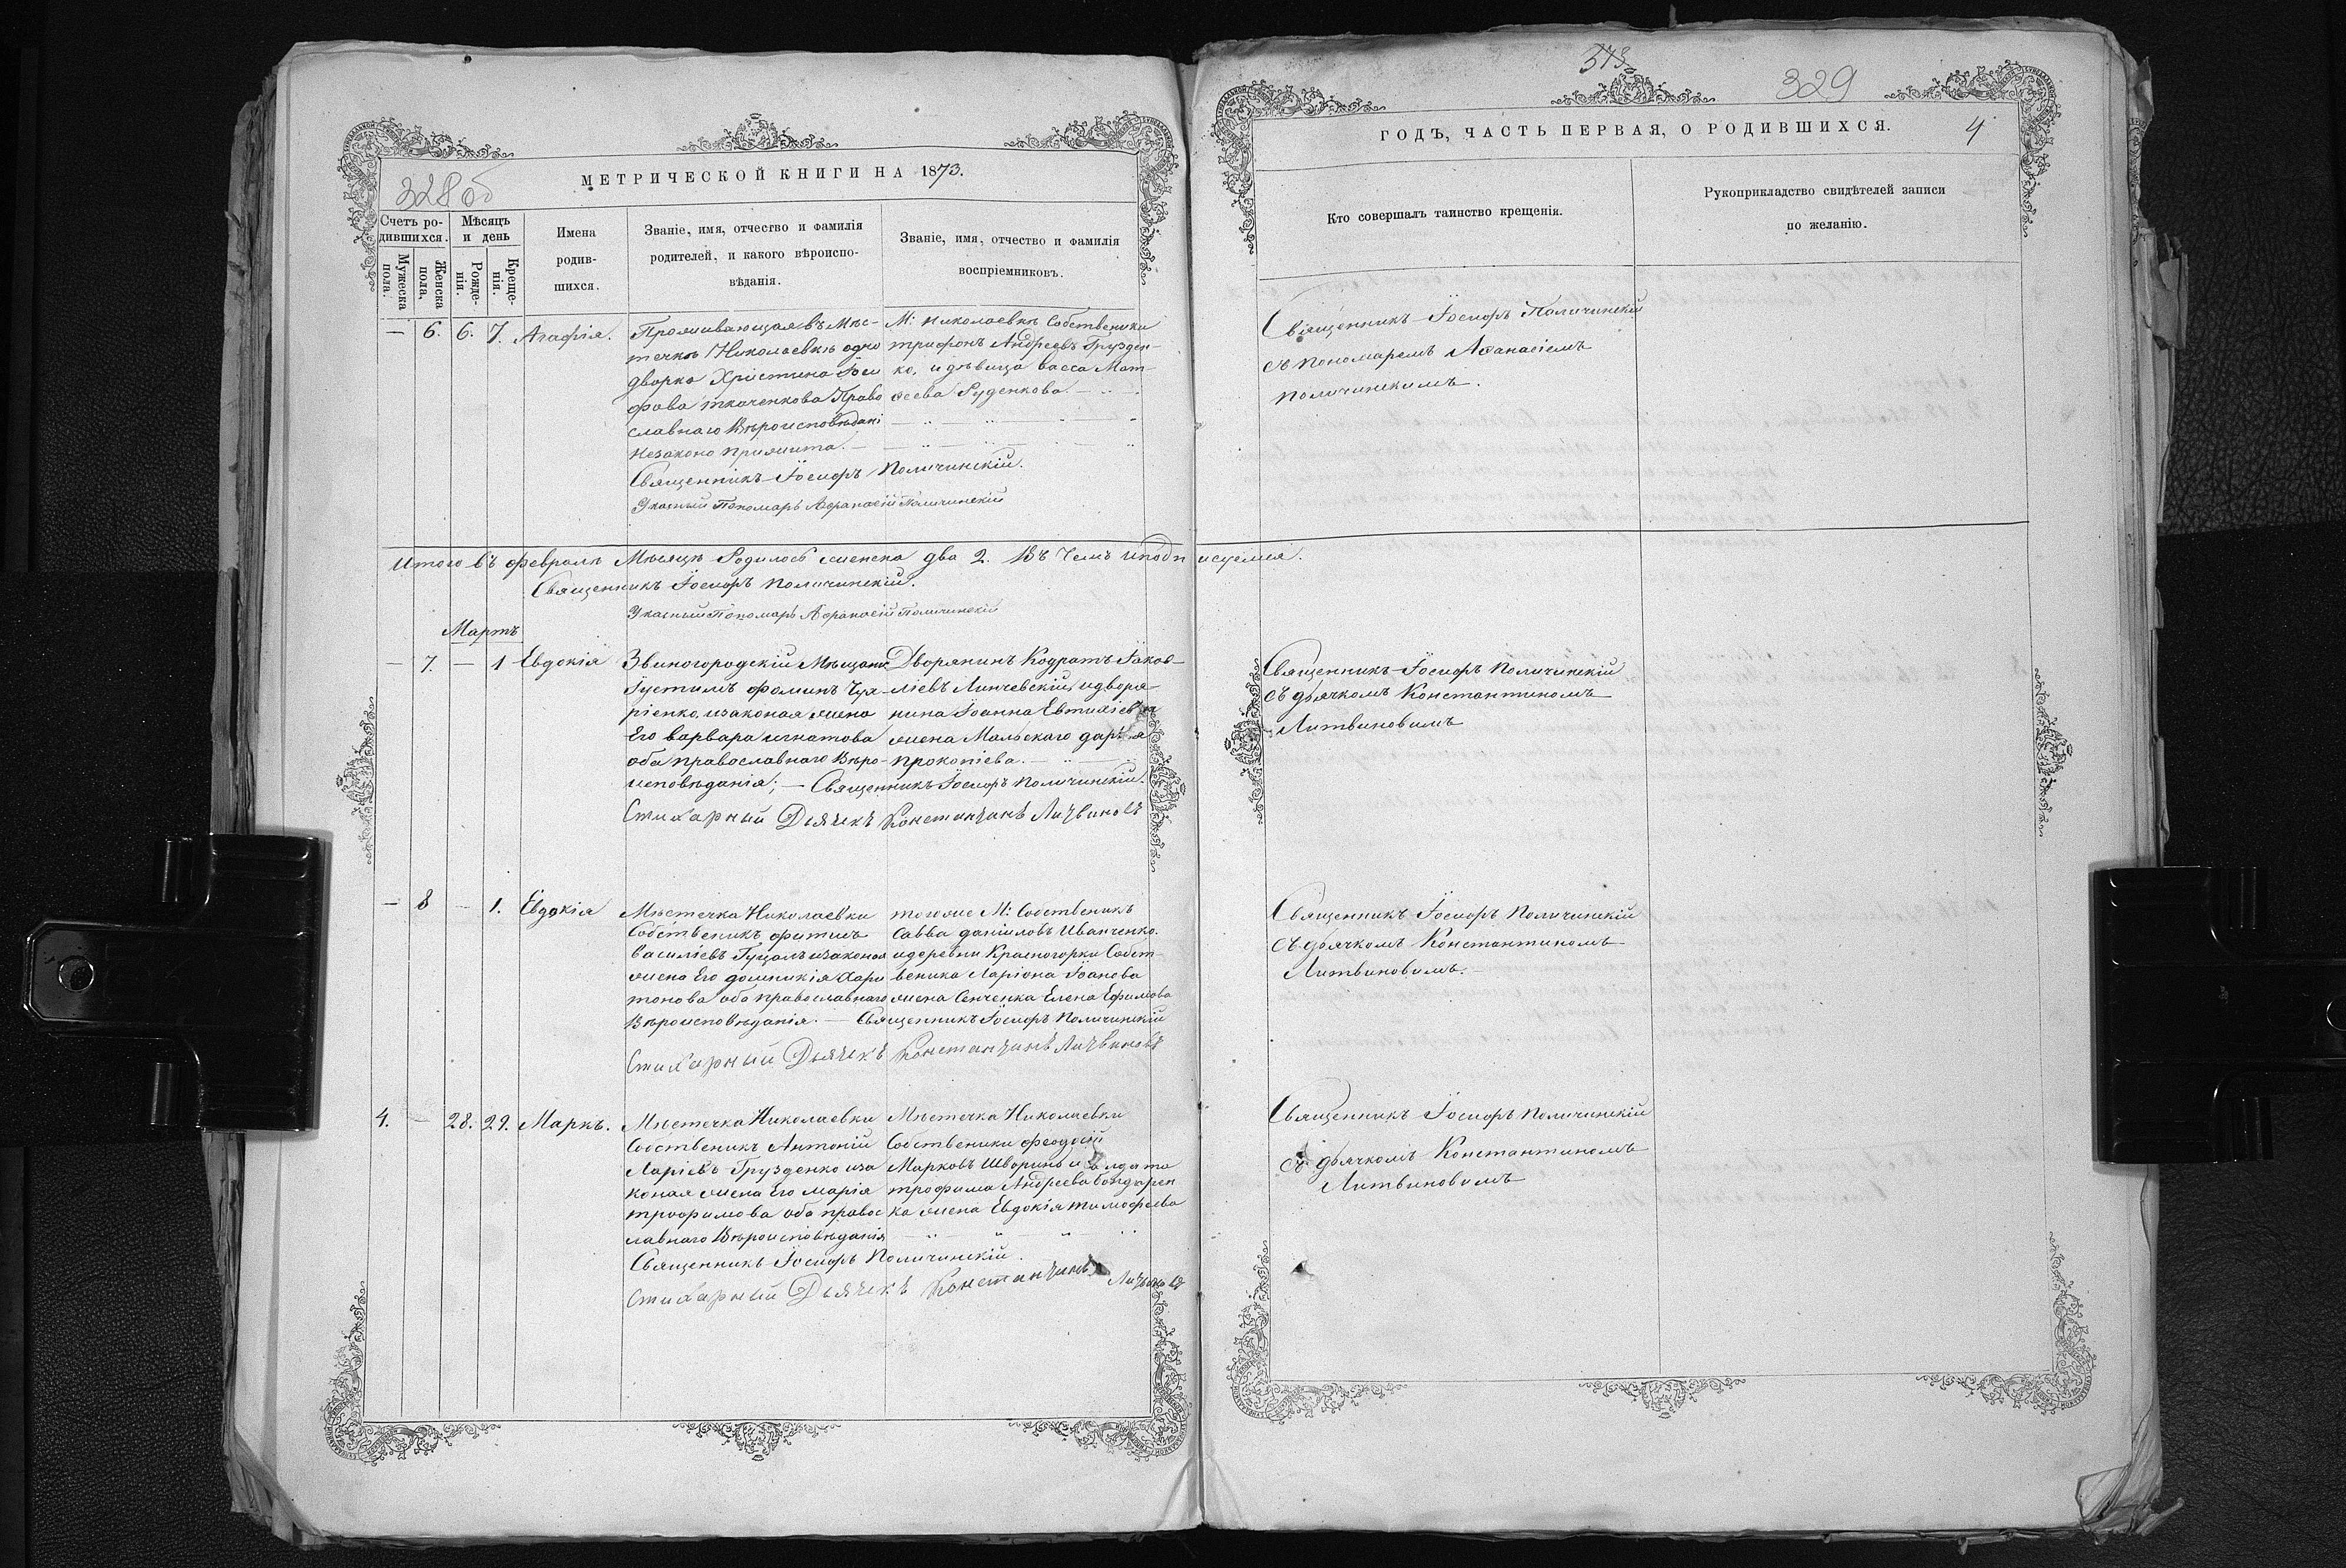 328 об
МЕТРИЧЕСКОЙ КНИГИ НА 1873.
Счетъ ро-
дившихся.
Мужеска
пола.
Женска
пола.
Мѣсяцъ
и день
Рожде-
нія.
Креще-
нія.
Имена
родив-
шихся.
Званіе, имя, отчество и фамилія
родителей, и какого вѣроиспо-
вѣданія.
Званіе, имя, отчество и фамилія
воспріемниковъ.
— 6. 6. 7. Агафія.
Проживающая въ Мѣс-
течкѣ Николаевкѣ одно
дворка Христина Іоси
фова ткаченкова Право
славнаго Вѣроисповѣдані
незаконо прижита.
М: Николаевки Собственики
трифонъ Андреевъ Грузден-
ко, и дѣвица васса Мат-
ѳеева Руденкова.
Священникъ Іосифъ Поличинскій.
Указный Пономарь Афанасій Поличинскій
Итого въ февралѣ Мѣсяцѣ Родилось женска два 2. Въ Чемъ и подписуемся.
Священникъ Іосифъ Поличинскій.
Указный Пономарь Афанасій Поличинскій
Мартъ
— 7. — 1 Евдокія
Звиногородскій Мѣщанин
Іустимъ фоминъ
его варвара игнатова
оба православнаго Вѣро-
исповѣданія; — Священникъ Іосифъ Поличинскій.
Дворянинъ Кодратъ Іаков-
лієвъ Линчевскій, и дворя-
нина Іоанна
жена Мальскаго дарія
прокопіева.
Стихарный Дьячекъ Константинъ Литвиновъ
— 8 — 1. Евдокія
Мѣстечка Николаевки
Собственикъ
васильевъ Гуцалъ и законая
жена Его домникія Хари
тонова оба православнаго
Вѣроисповѣданія. — Священникъ Іосифъ Поличинскій
тогоже М: Собственикъ
Савва даніиловъ Иванченко.
и деревни Красногорки Собст-
веника Ларіона Іоанова
жена Сенченка Елена Ефимова
Стихарный Дьячекъ Константинъ Литвиновъ
4. — 28. 29. Маркъ.
Мѣстечка Николаевки
Собственикъ Антоній
Ларіевъ Грузденко и за
коная жена Его марія
трофимова оба правос
лавнаго Вѣроисповѣданія
Мѣстечка Николаевки
Собственики феодосій
Марковъ Шворинъ и Салдата
трофима Андреева бондарен
ка жена Евдокія тимофеева
Священникъ Іосифъ Поличинскій.
Стихарный Дьячекъ Константинъ Литвиновъ
329
ГОДЪ, ЧАСТЬ ПЕРВАЯ, О РОДИВШИХСЯ.
4
Кто совершалъ таинство крещенія.
Рукоприкладство свидѣтелей записи
по желанію.
Священникъ Іосифъ Поличинскій
съ пономаремъ Афанасіемъ
Поличинскимъ.
Священникъ Іосифъ Поличинскій
съ дьячкомъ Константиномъ
Литвиновымъ
Священникъ Іосифъ Поличинскій
съ дьячкомъ Константиномъ
Литвиновымъ.
Священникъ Іосифъ Поличинскій
съ дьячкомъ Константиномъ
Литвиновымъ